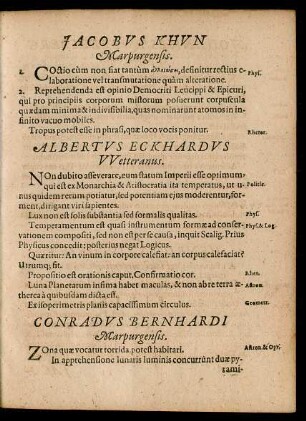 JACOBVS KHVN
Marpurgensis.
1. COctio cùm non fiat tantùm definitur rectius e- Phys.
laboratione vel transmutatione quàm alteratione.
2. Reprehendenda est opinio Democriti Leucippi & Epicuri,
qui pro principiis corporum mistorum posuerunt corpuscula
quædam minima & indivisibilia, quas nominarunt atomos in in-
finito vacuo mobiles.
Tropus potest esse in phrasi, quæ loco vocis ponitur. Rhetor.
ALBERTVS ECKHARDVS
VVetteranus.
NOn dubito asseverare, eum statum Imperii esse optimum,
qui est ex Monarchia & Aristocratia ita temperatus, ut u- Politic.
nus quidem rerum potiatur, sed potentiam ejus moderentur, for-
ment, dirigant viri sapientes.
Lux non est solis substantia sed formalis qualitas. Phys.
Temperamentum est quasi instrumentum formæ ad conser- Phys. & Log.
vationem compositi, sed non est per se causa, inquit Scalig. Prius
Physicus concedit: posterius negat Logicus.
Quæritur: An vinum in corpore calefiat: an corpus calefaciat?
Utrumq; fit.
Propositio est orationis caput, Confirmatio cor. Rhet.
Luna Planetarum infima habet maculas, & non abre terra æ- Astron.
therea à quibusdam dicta est.
Ex isoperimetris planis capacissimum circulus. Geometr.
CONRADVS BERNHARDI
Marpurgensis.
ZOna quæ vocatur torrida, potest habitari. Astron. & Opt.
In apprehensione lunaris luminis concurrunt duæ py-
rami-